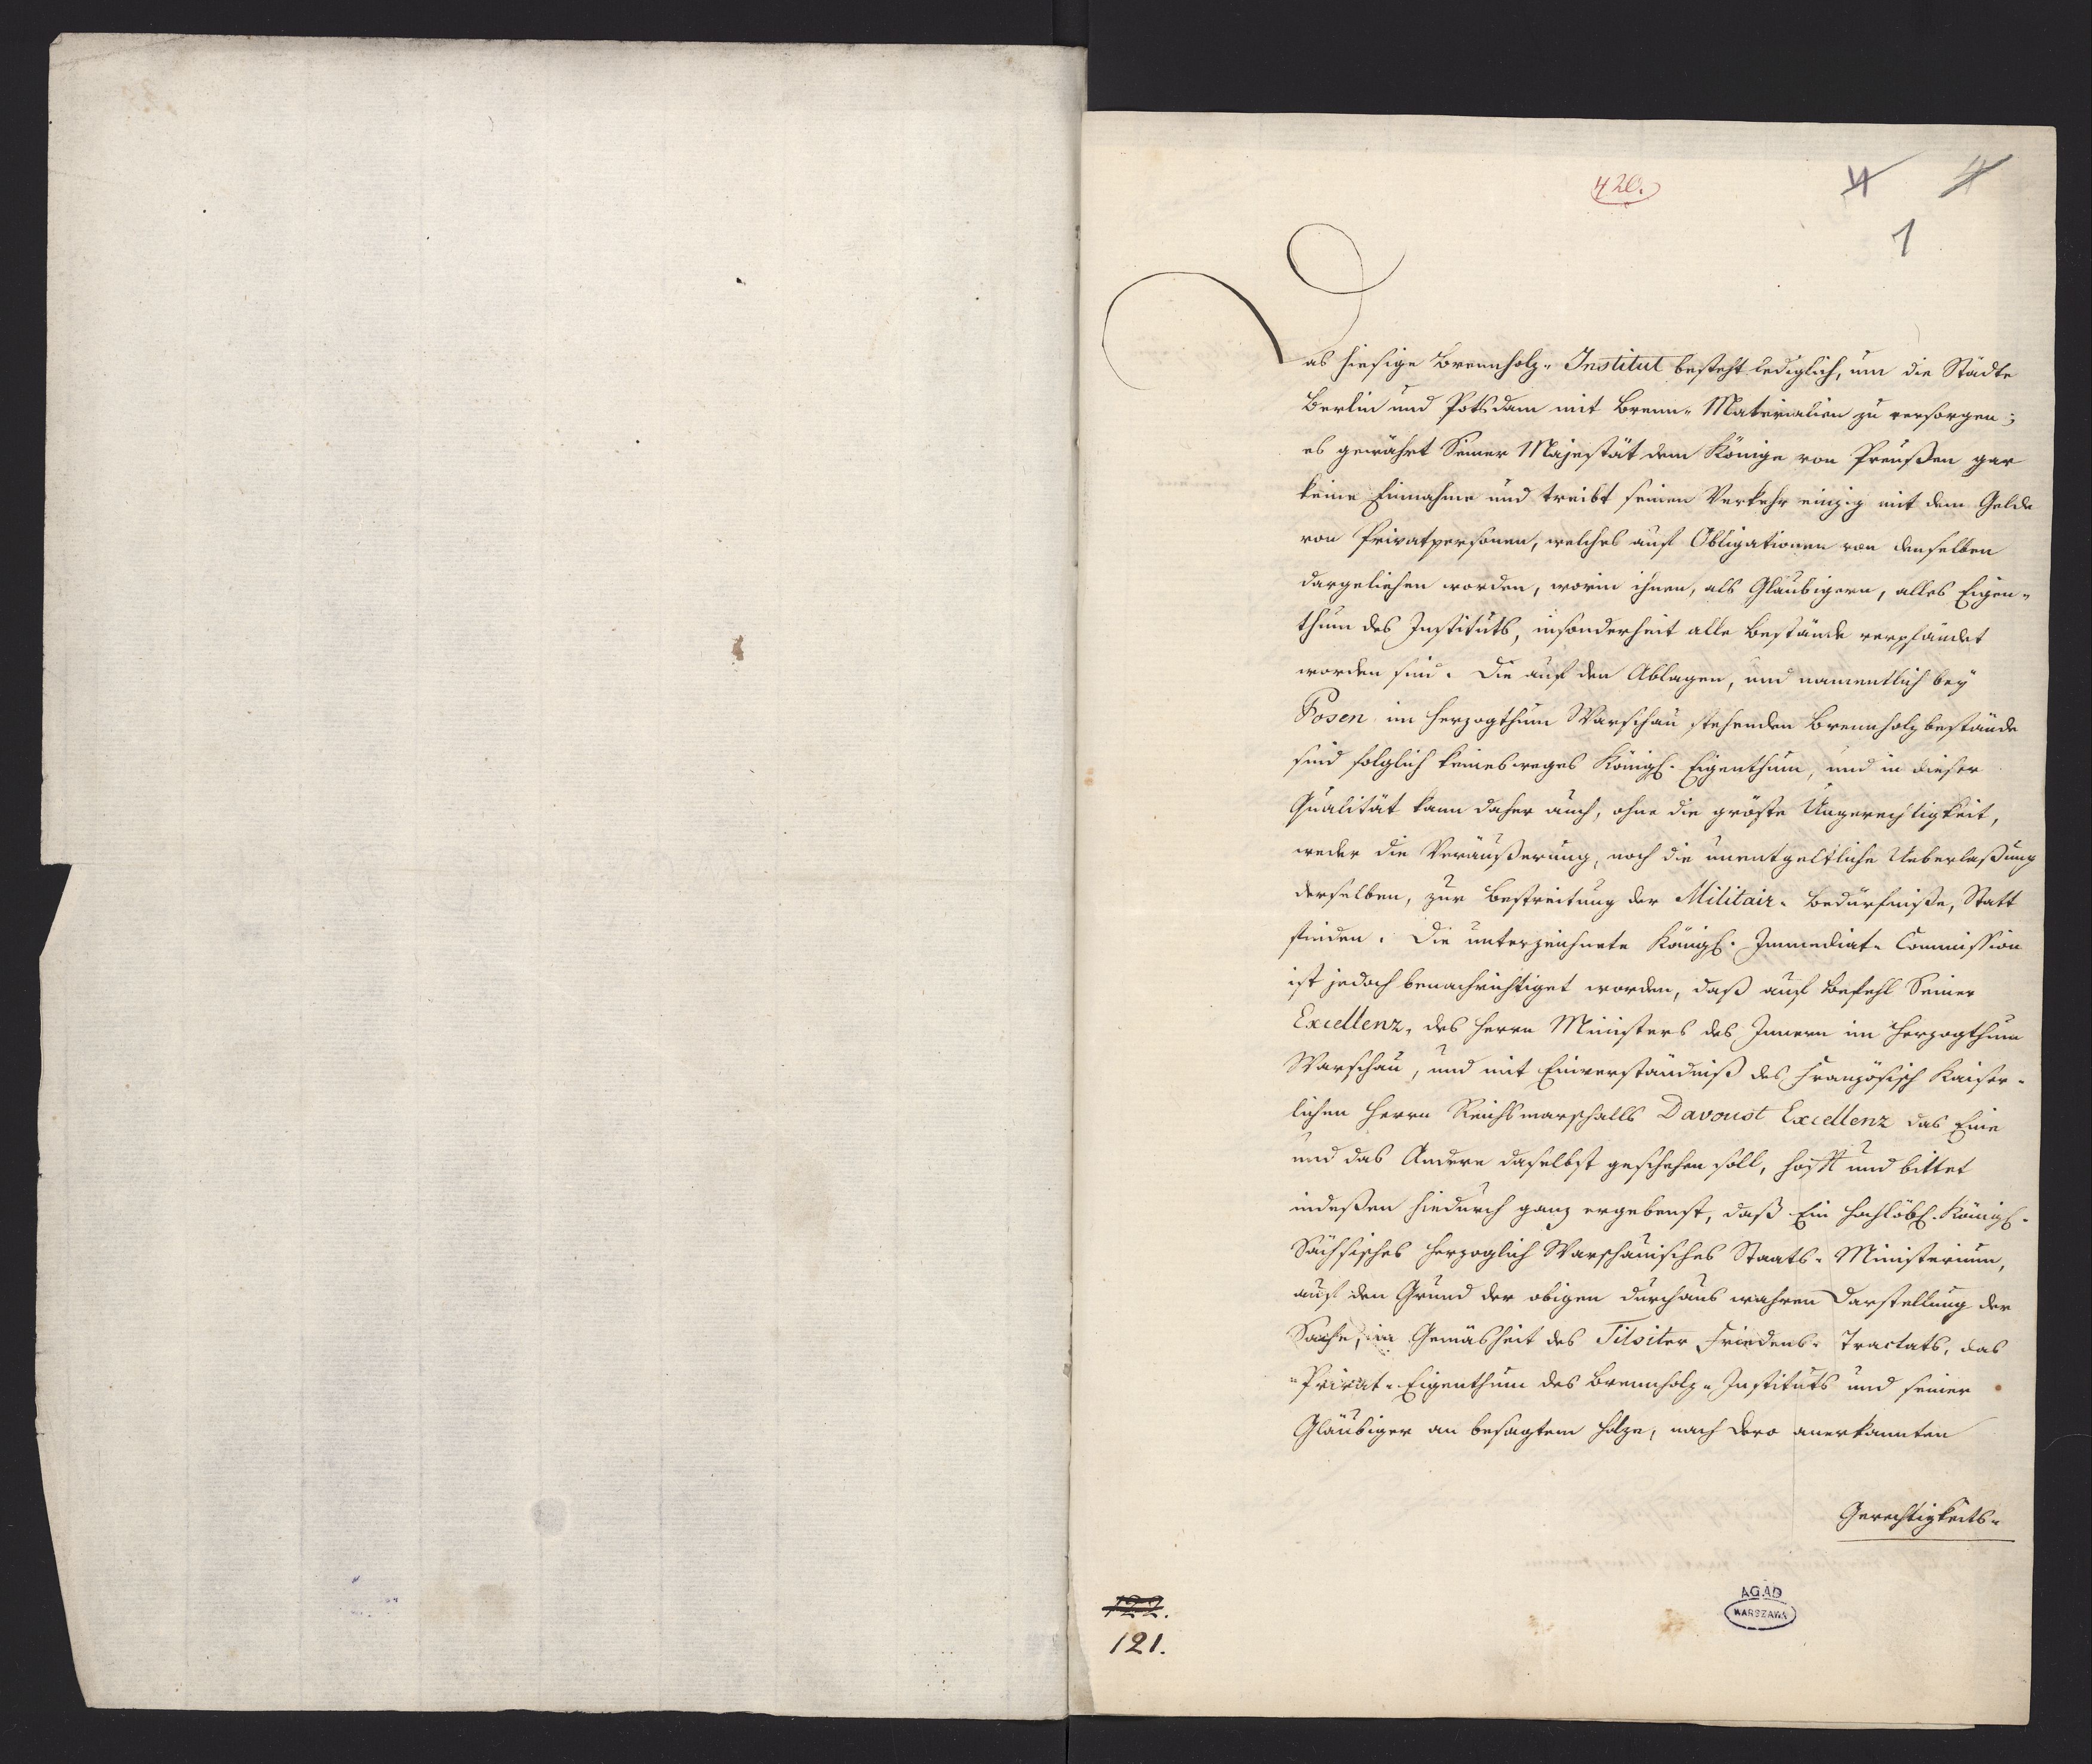 420.
4 4
1
Das hiesige Brennholz-Institut besteht lediglich, um die Städte
Berlin und Potsdam mit Brenn-Materialien zu versorgen;
es gewährt Seiner Majestät dem Könige von Preußen gar
keine Einnahme und treibt seinen Verkehr einzig mit dem Gelde
von Privatpersonen, welches auf Obligationen von denselben
dargeliehen worden, worin ihnen, als Gläubigern, alles Eigen-
thum des Instituts, insonderheit alle Bestände verpfändet
worden sind. Die auf den Ablagen, und namentlich bey
Posen im Herzogthum Warschau stehenden Brennholzbestände
sind folglich keinesweges Königl. Eigenthum, und in dieser
Qualität kann daher auch, ohne die gröste Ungerechtigkeit,
weder die Veräußerung, noch die unentgeltliche Ueberlaßung
derselben, zur Bestreitung der Militair-Bedürfniße, Statt
finden. Die unterzeichnete Königl. Immediat-Commission
ist jedoch benachrichtiget worden, daß auf Befehl Seiner
Excellenz, des Herrn Ministers des Innern im Herzogthum
Warschau, und mit Einverständniß des Französisch Kaiser-
lichen Herrn Reichsmarschalls Davoust Excellenz das Eine
und das Andere daselbst geschehen soll, hofft und bittet
indeßen hiedurch ganz ergebenst, daß Ein Hochlöbl. Königl.
Sächsisches Herzoglich Warschauisches Staats-Ministerium,
auf den Grund der obigen durchaus wahren Darstellung der
Sache, in Gemäsheit des Tilsiter Friedens-Tractats, das
Privat-Eigenthum des Brennholz-Instituts und seiner
Gläubiger an besagtem Holze, nach dero anerkannten
Gerechtigkeits-
AGAD
WARSZAWA
122.
121.